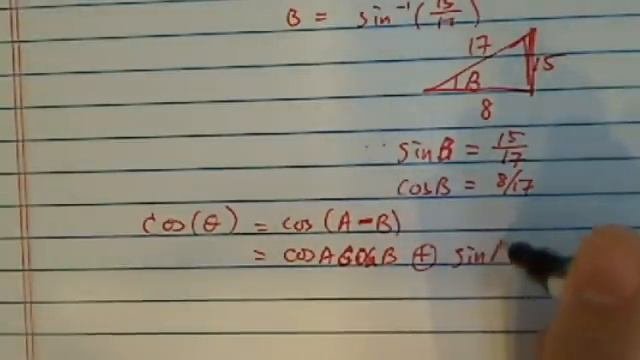 B = sin⁻¹(15/17)
17
15
B
8
∴ sinB = 15/17
cosB = 8/17
cos(θ) = cos(A-B)
= cosAcosB ⊕ sin